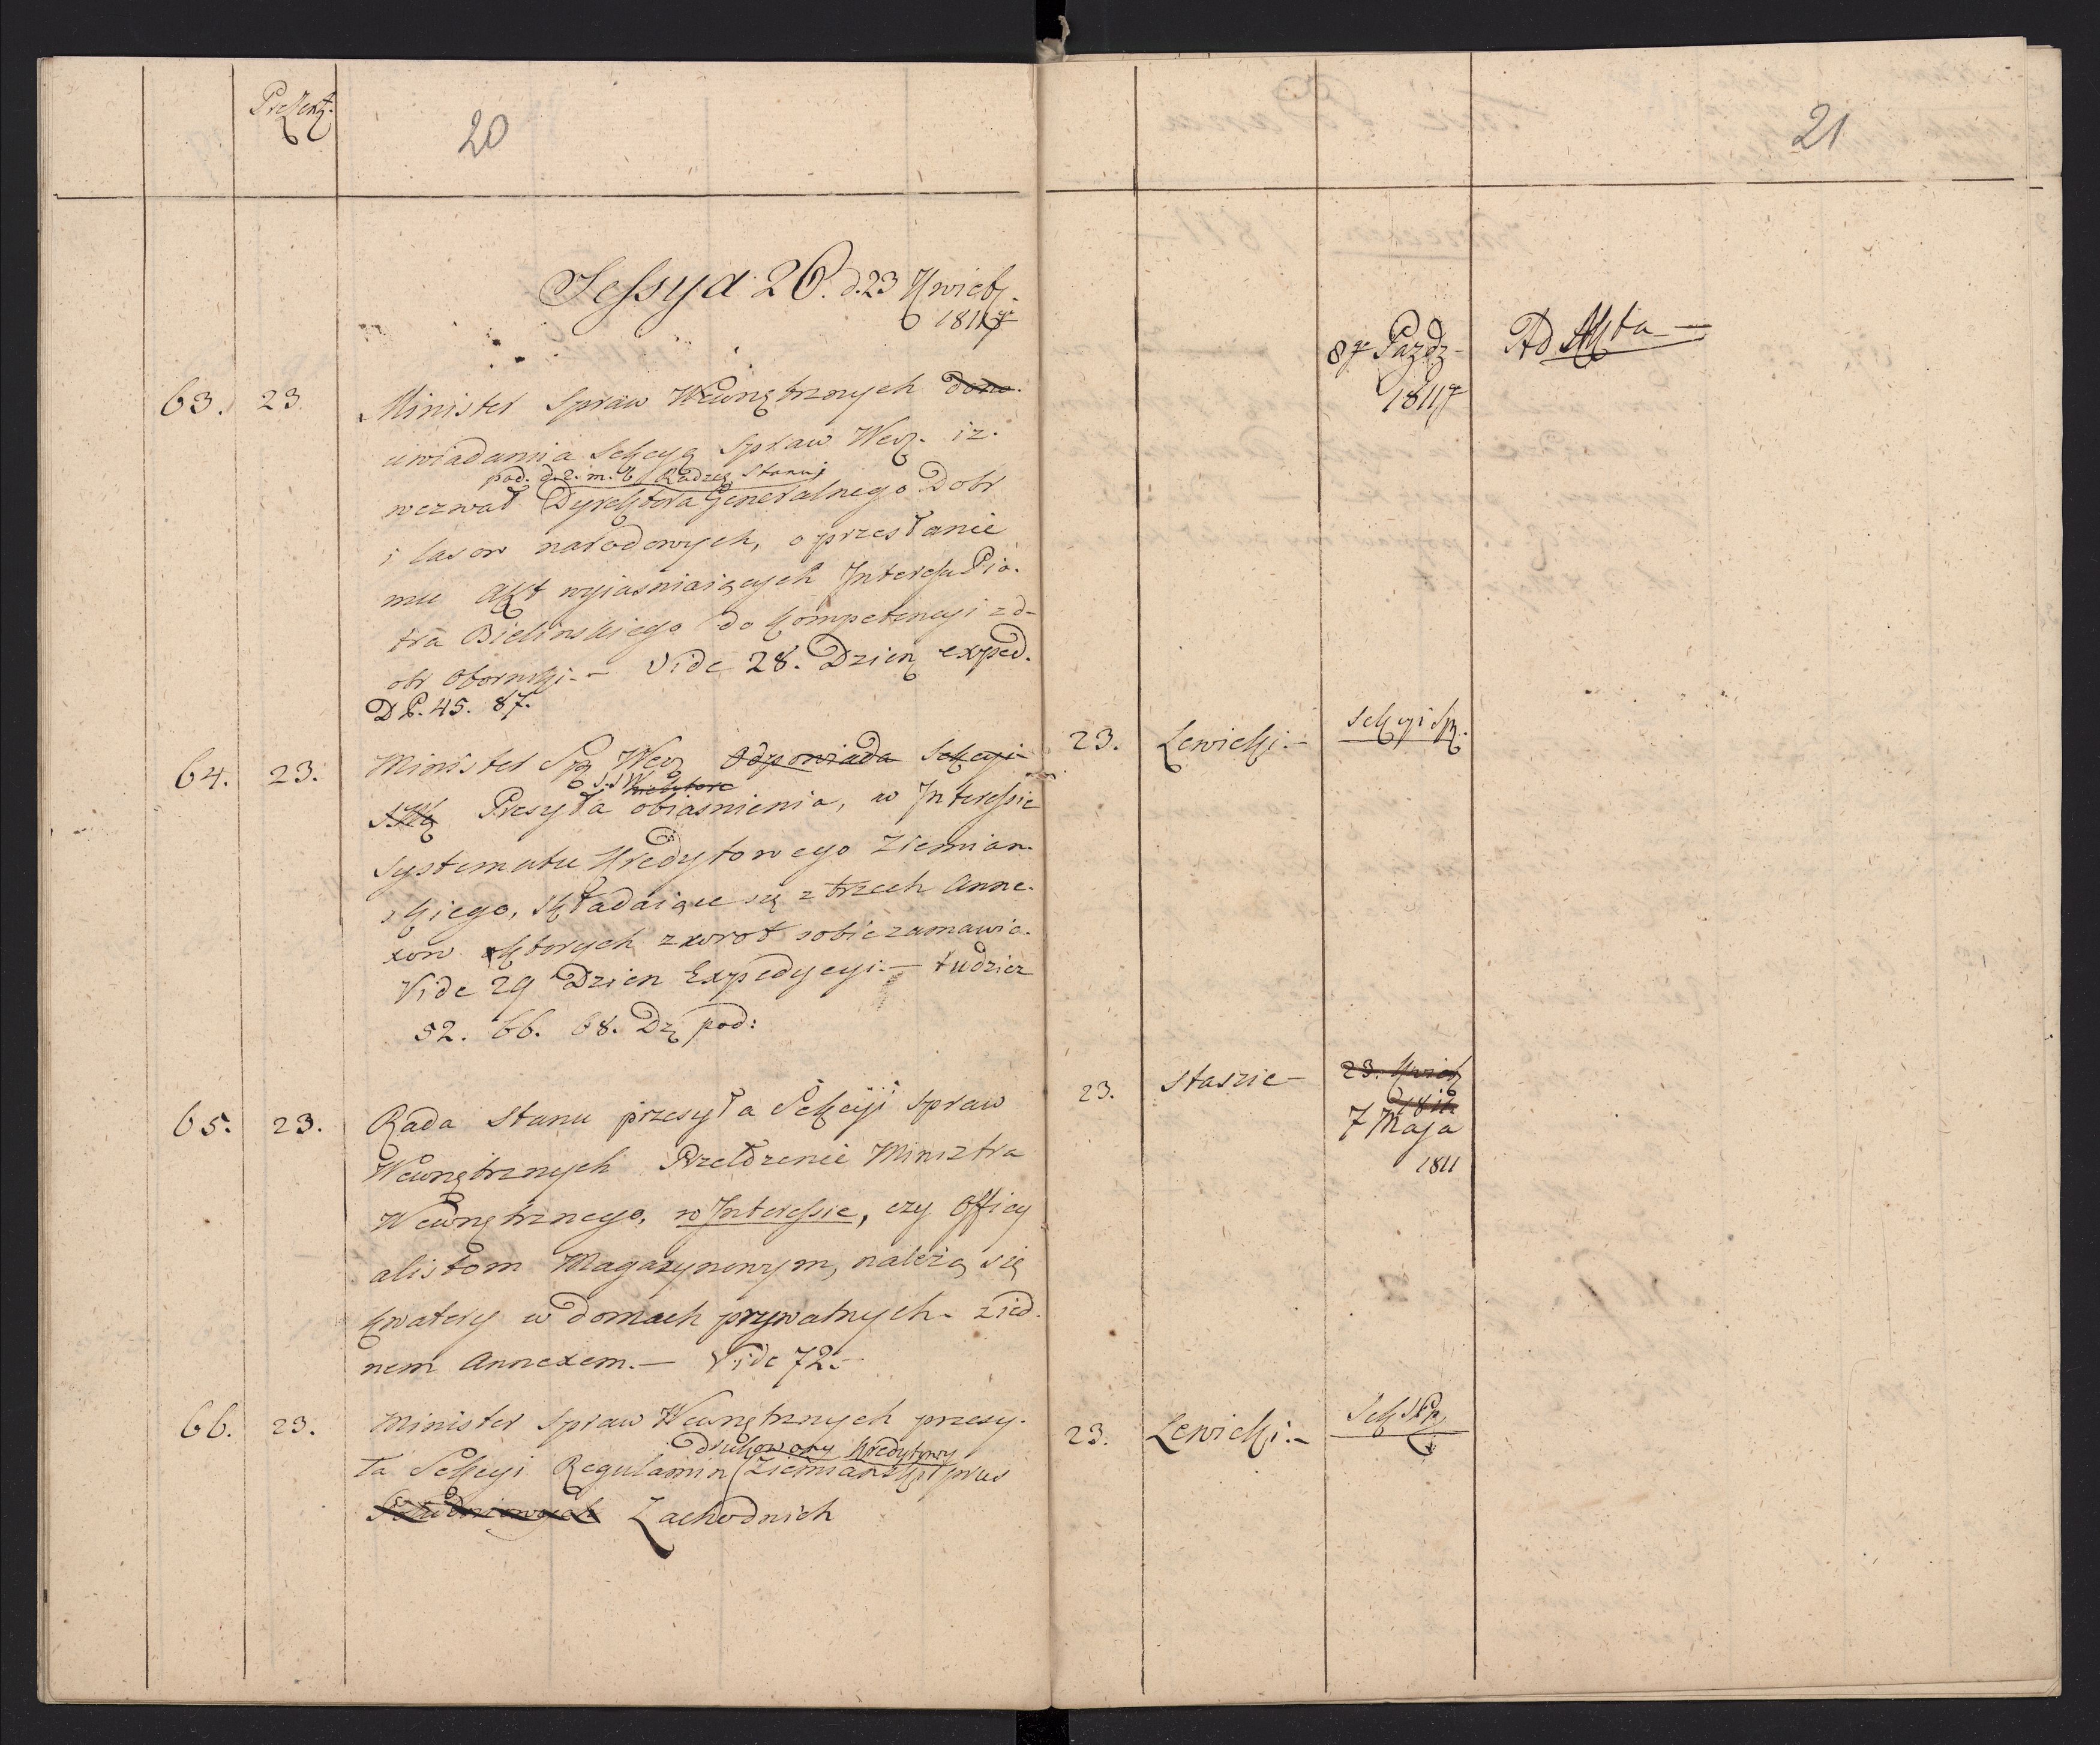 Prezent.
20
Sessya 26. d. 23 Kwiet.
1811 r
63. 23. Minister Spraw Wewnętrznych dono-
uwiadamia Sekcyą Spraw Wew. iz.
pod. d. 2. m. b. Radzcę Stanu
wezwał Dyrektora Generalnego Dobr
i lasow narodowych, o przesłanie
mu Akt wyiasniaiących Interessu Pio-
tra Bielinskiego do kompetencyi z d-
obr Obornski. - Vide 28. Dzien. exped.
D P. 45. 87.
64. 23. Minister Sp. Wew. Odpowiada Sekcyi
S. S W. niektore
SW. Przesyła obiasnienia, w Interessie
systematu Kredytowego Ziemian-
skiego, składaiące się z trzech Anne-
xow ktorych zwrot sobie zamawia.
Vide 29 Dzien Expedycyi. - tudziez
52. 66. 68. Dz. pod:
65. 23. Rada Stanu przesyła Sekcyi Spraw
Wewnętrznych Przełozenie Ministra
Wewnętrznego, w Interessie, czy Officy
alistom Magazynowym, nalezą się
kwatery w domach prywatnych. z ied-
nem Annexem. - Vide 72. -
66. 23. Minister Spraw Wewnętrznych przesy-
drukowany Kredytowy
ła Sekcyi Regulamin Ziemianski prus
Zachodnich
21
8go Pazdz-
1811 r
Ad Akta
23. Lewicki. - Sekcyi Sp.
23. Staszic - 23. Kwiet
1811
7 Maja
1811
23. Lewicki. - Sek. Sp.